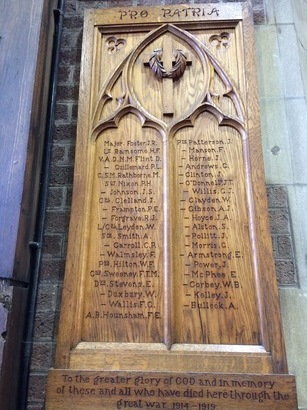 PRO PATRIA
Major Foster J.R.
Lt Ransome H.F.
V.A.D.N.M. Flint D.
" Guillemard P.L.
C.S.M. Rathborne M.
Sgt Nixon P.H.
" Johnson J.S.
Cpl Clelland J.
" Frampton P.E.
" Forgrave R.J.
L/Cpl Leyden W.
Spr Smith A.
" Carroll C.R.
" Walmsley F.
Pte Hilton W.F.
Gnr Sweeney F.T.M.
Dvr Stevens E.
" Duxbury W.
" Wallis F.G.
A.B. Hounsham F.E.
Pte Patterson J.
" Manson F.
" Horne J.
" Andrews G.
" Clinton J.
" O'Donnell P.J.T.
" Willis C.J.
" Clayden W.
" Gibson A.J.
" Hoyce J.A.
" Alston S.
" Pollitt J.
" Morris G.
" Armstrong E.
" Power J.
" McPhee E.
" Corbey W.B.
" Kelley J.
" Bullock A.
To the greater glory of GOD and in memory
of these and all who have died here through the
great war 1914-1919